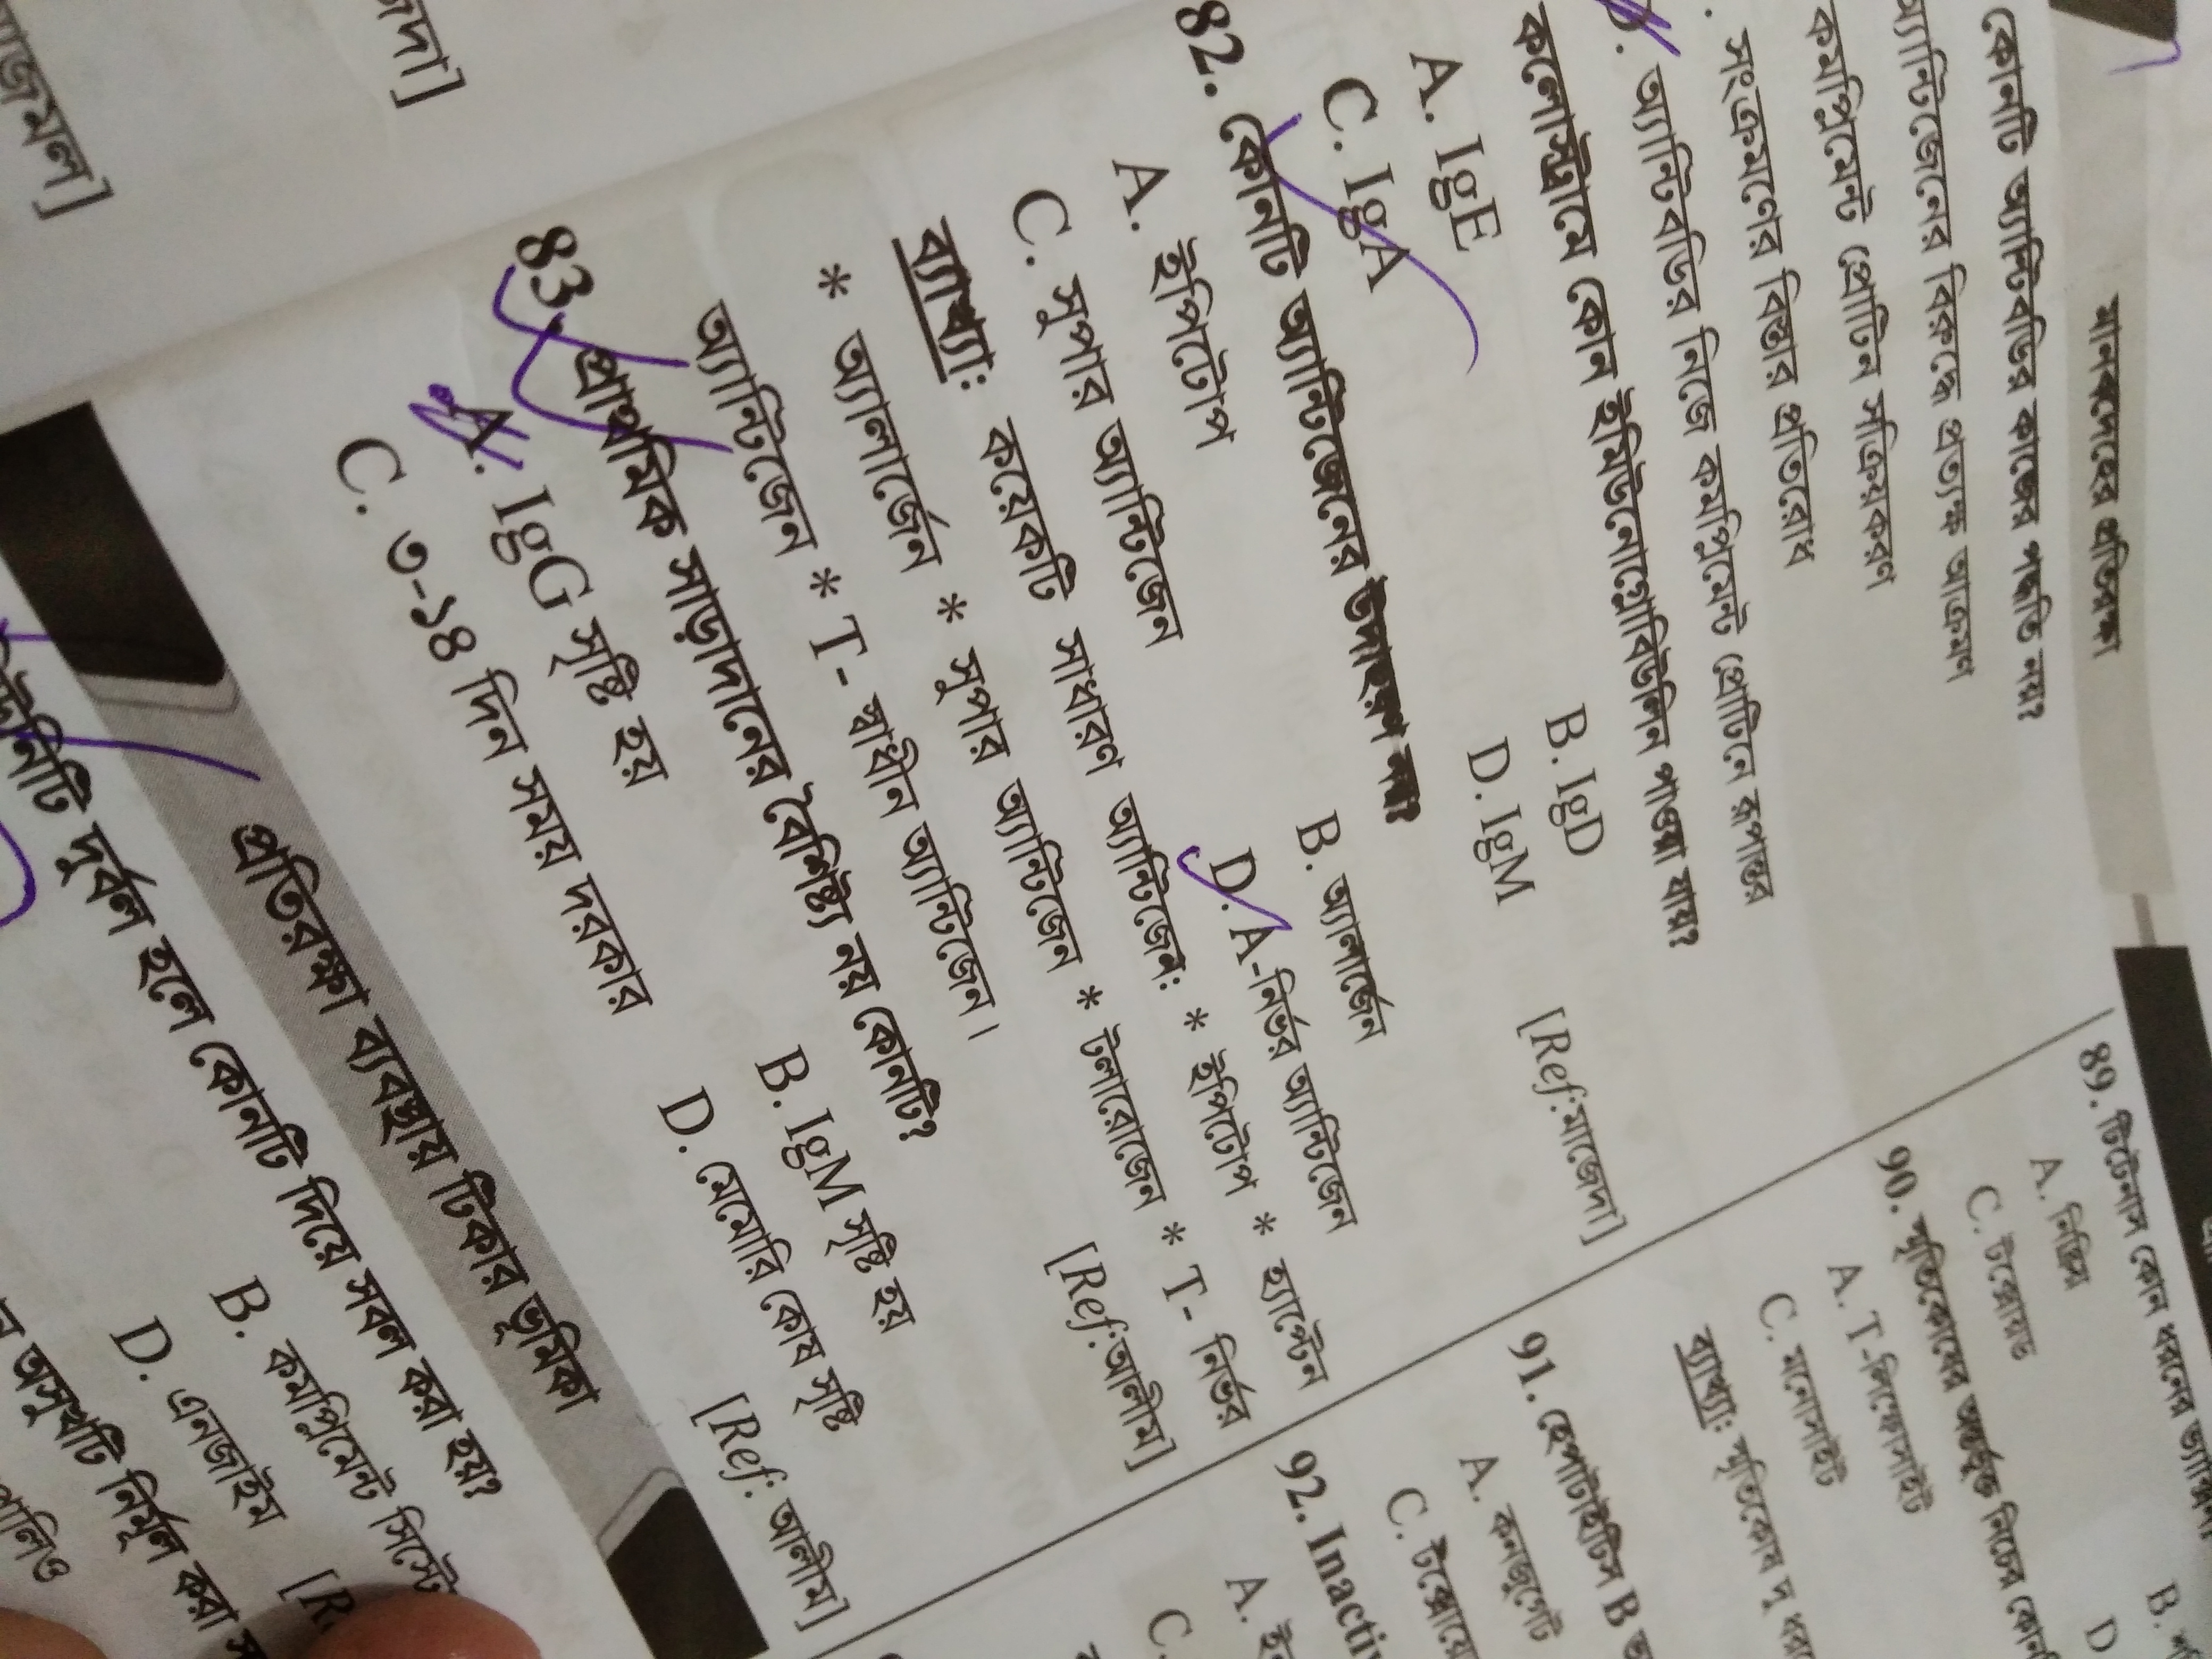 মানবদেহের প্রতিরক্ষা
কোনটি অ্যান্টিবডির কাজের পদ্ধতি নয়?
অ্যান্টিজেনের বিরুদ্ধে প্রত্যক্ষ আক্রমণ
কমপ্লিমেন্ট প্রোটিন সক্রিয়করণ
. সংক্রমণের বিস্তার প্রতিরোধ
. অ্যান্টিবডির নিজে কমপ্লিমেন্ট প্রোটিনে রূপান্তর
কলোস্ট্রামে কোন ইমিউনোগ্লোবিউলিন পাওয়া যায়?
A. IgE B. IgD
C. IgA D. IgM
[Ref:মাজেদা]
82. কোনটি অ্যান্টিজেনের উদাহরণ নয়?
A. ইপিটোপ B. অ্যালার্জেন
C. সুপার অ্যান্টিজেন D. A-নির্ভর অ্যান্টিজেন
ব্যাখ্যা: কয়েকটি সাধারণ অ্যান্টিজেন: * ইপিটোপ * হ্যাপ্টেন
* অ্যালার্জেন * সুপার অ্যান্টিজেন * টলারোজেন * T- নির্ভর
অ্যান্টিজেন * T- স্বাধীন অ্যান্টিজেন।
[Ref:আলীম]
83. প্রাথমিক সাড়াদানের বৈশিষ্ট্য নয় কোনটি?
A. IgG সৃষ্টি হয় B. IgM সৃষ্টি হয়
C. ৩-১৪ দিন সময় দরকার D. মেমোরি কোষ সৃষ্টি
[Ref: আলীম]
প্রতিরক্ষা ব্যবস্থায় টিকার ভূমিকা
দুর্বল হলে কোনটি দিয়ে সবল করা হয়?
B. কমপ্লিমেন্ট
D. এনজাইম
অসুখটি নির্মূল করা
89. টিটেনাস কোন ধরনের
A. নিষ্ক্রিয় B.
C. টক্সোয়েড D
90. স্মৃতিকোষের অন্তর্ভুক্ত নিচের
A. T-লিম্ফোসাইট
C. মনোসাইট
ব্যাখ্যা: স্মৃতিকোষ দু
91. হেপাটাইটিস B
A. কনজুগেট
C.
92.
A.
C.